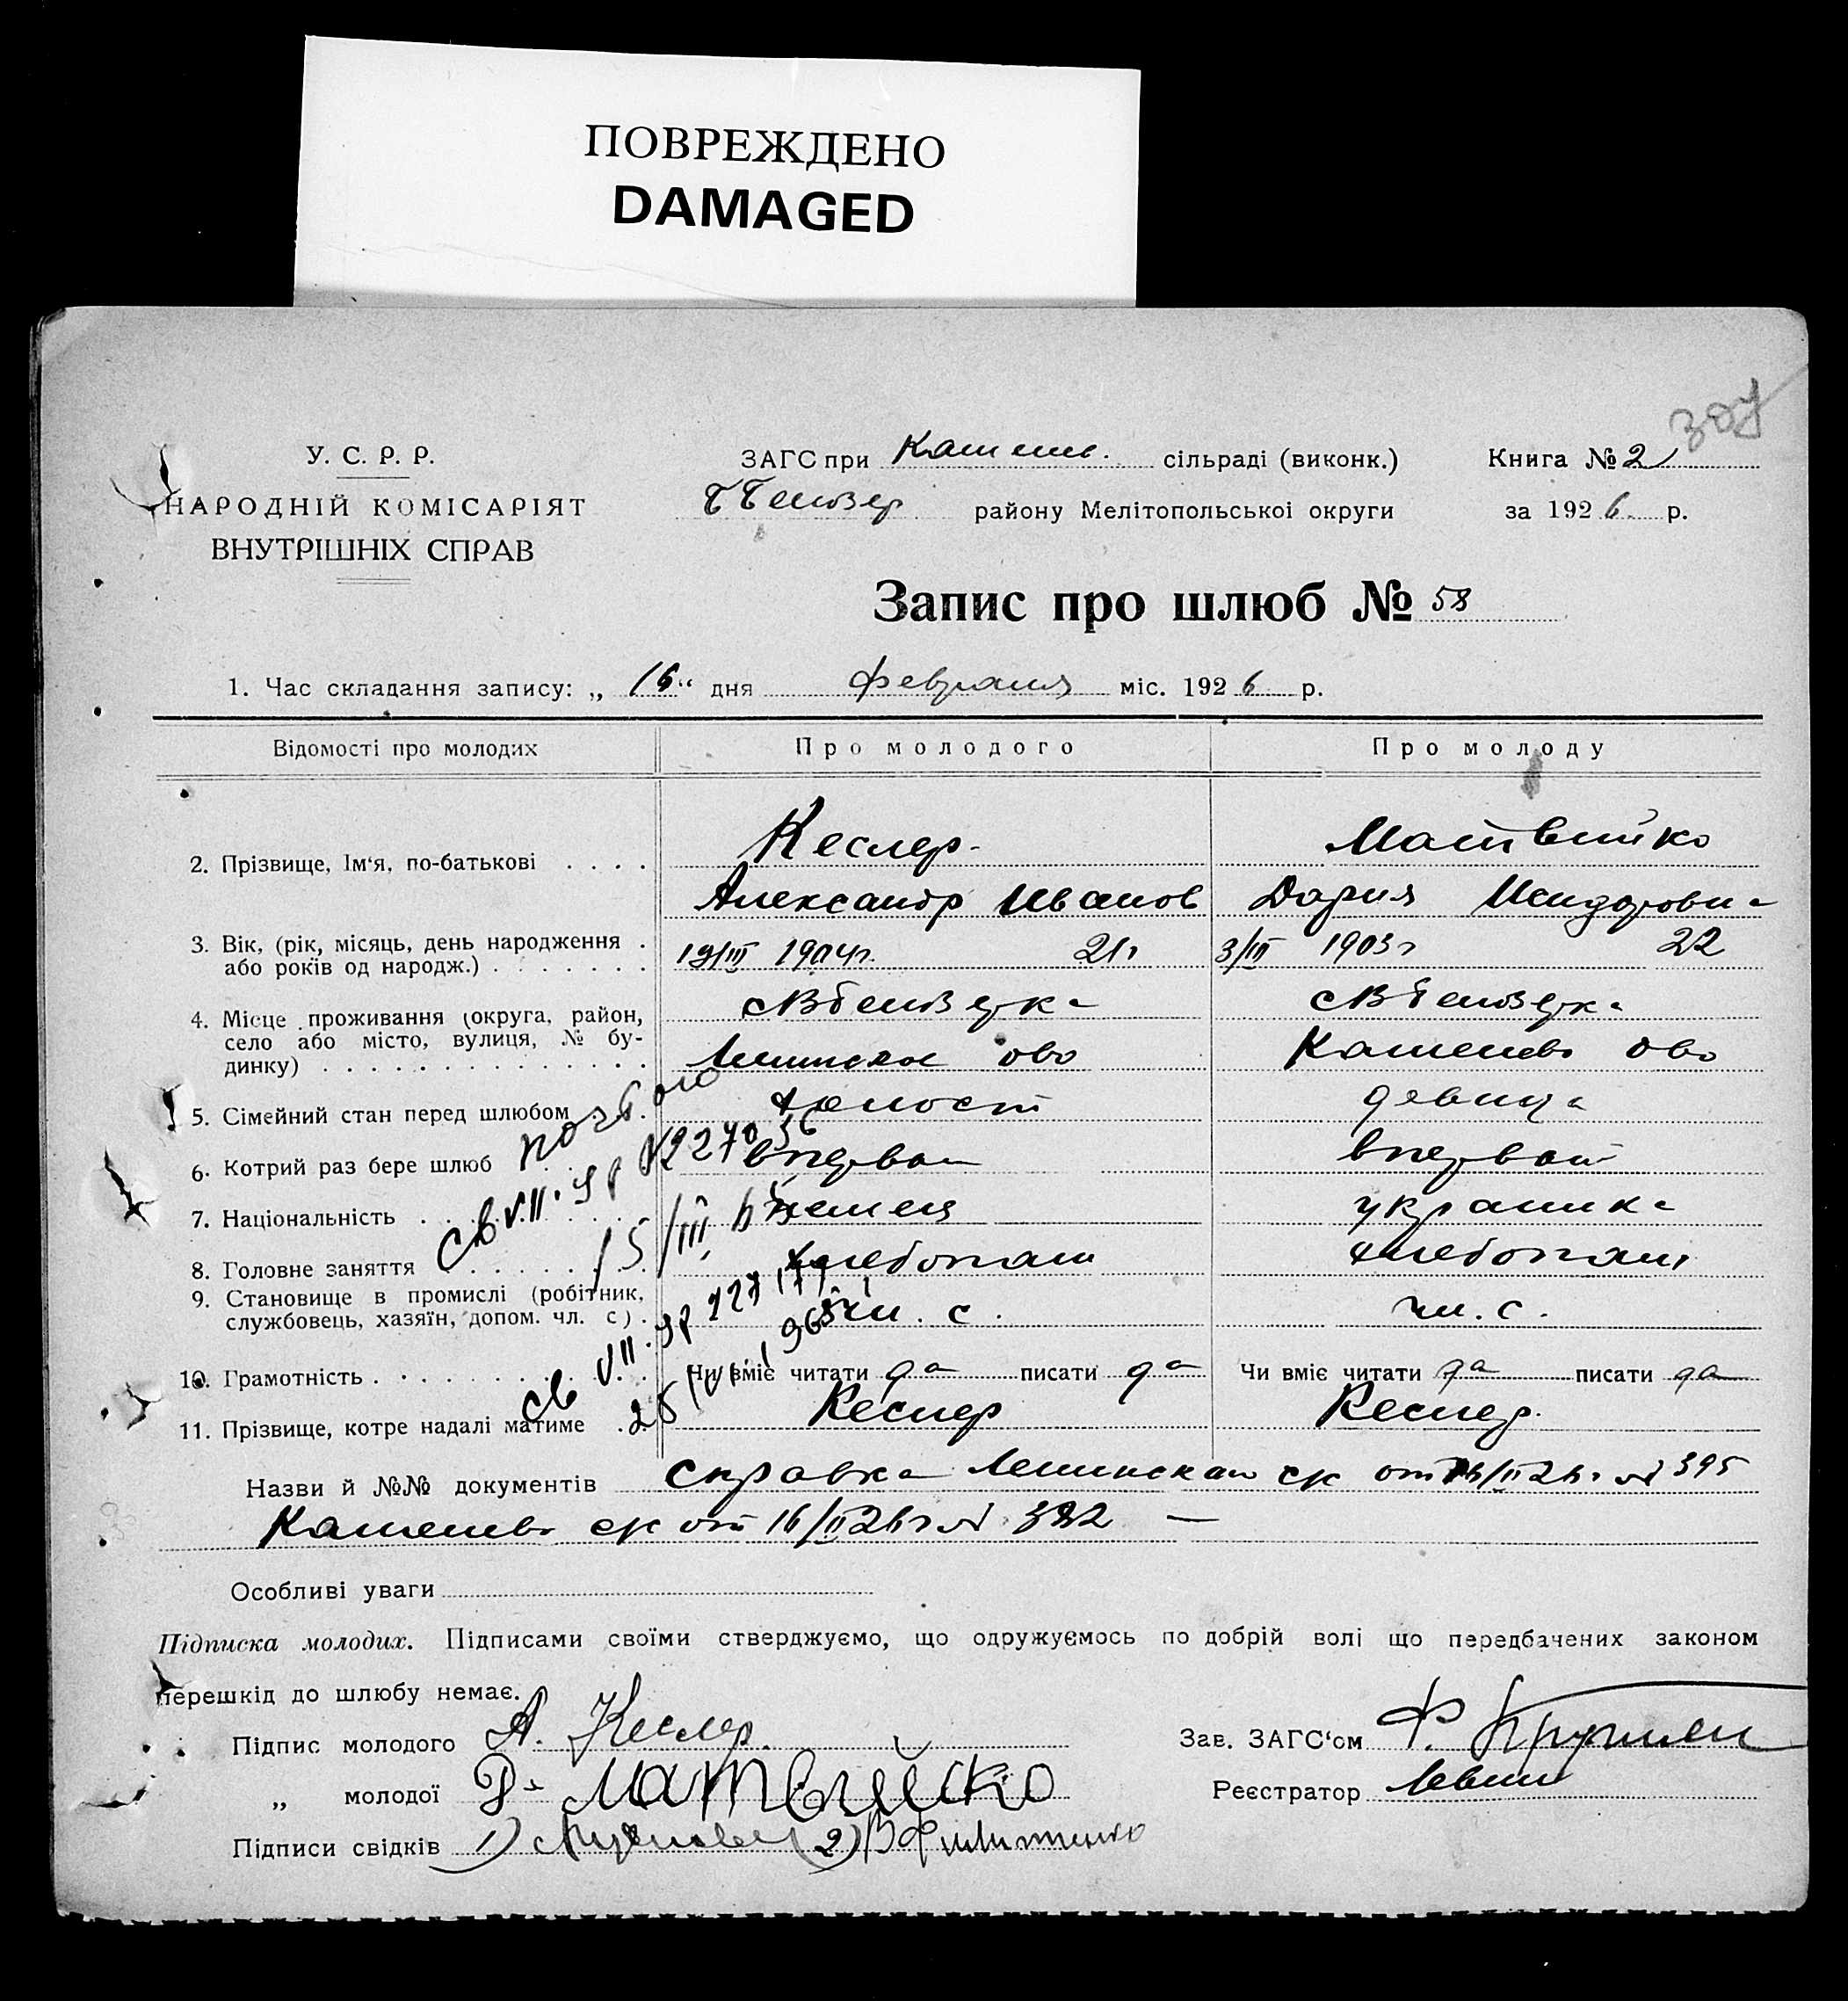 ПОВРЕЖДЕНО
DAMAGED
307
У. С. Р. Р.
НАРОДНІЙ КОМІСАРІЯТ
ВНУТРІШНІХ СПРАВ
ЗАГС при Каменс. сільраді (виконк.) Книга № 2
району Мелітопольської округи за 1926 р.
Запис про шлюб № 58
1. Час складання запису: „ 16 “ дня февраля міс. 1926 р.
Відомості про молодих Про молодого Про молоду
2. Прізвище, Ім‘я, по-батькові . . . . Кеслер Матвийко
Александр Иванов Дария Исидоровна
3. Вік, (рік, місяць, день народження . 19/III 1904г. 21г 3/III 1903г 22
або років од народж.) . . . . . . .
4. Місце проживання (округа, район,
село або місто, вулиця, № бу-
динку) . . . . . . . . . . . . . .
Каменево ово
5. Сімейний стан перед шлюбом . . . холост девица
6. Котрий раз бере шлюб . . . первый первый
7. Національність . . . . . . . немец украинка
8. Головне заняття . . . . . . . хлебопаш хлебопаш
9. Становище в промислі (робітник,
службовець, хазяїн, допом. чл. с) . чл. с. чл. с.
10. Грамотність . . . . . . . . Чи вміє читати да писати да Чи вміє читати да писати да
11. Прізвище, котре надалі матиме . . Кеслер Кеслер.
Назви й №№ документів справка Ленинская ск от 16/II 26г № 395
Каменево ск от 16/II 26г № 382 —
Особливі уваги
Підписка молодих. Підписами своїми стверджуємо, що одружуємось по добрій волі що передбачених законом
перешкід до шлюбу немає.
Підпис молодого А. Кеслер. Зав. ЗАГС‘ом Ф.
„ молодої Д. Матвийско Реєстратор Левин
Підписи свідків 1) 2) В Филипенко